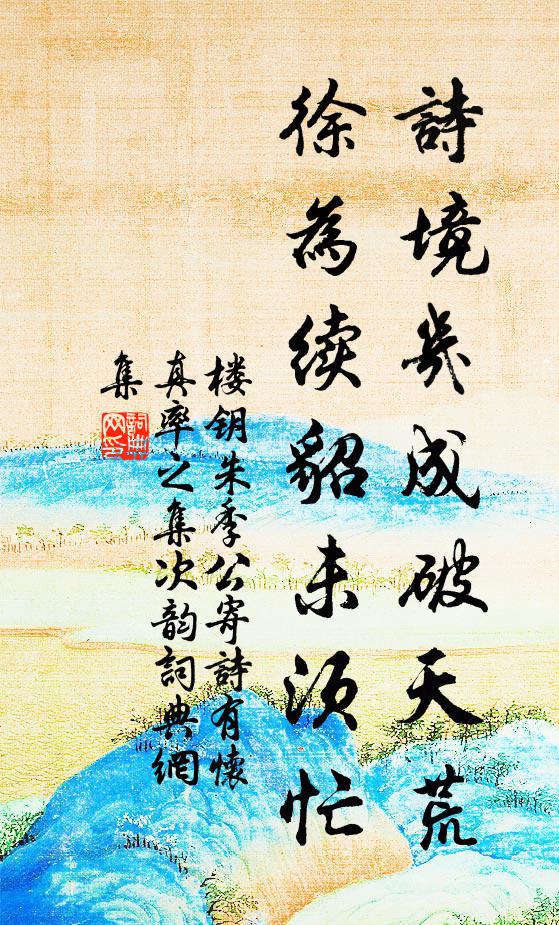 詩境幾成破天荒
徐為續貂未須忙
楼钥朱季公寄詩有懷
真率之集次韵詞典網
集
詞典
网印